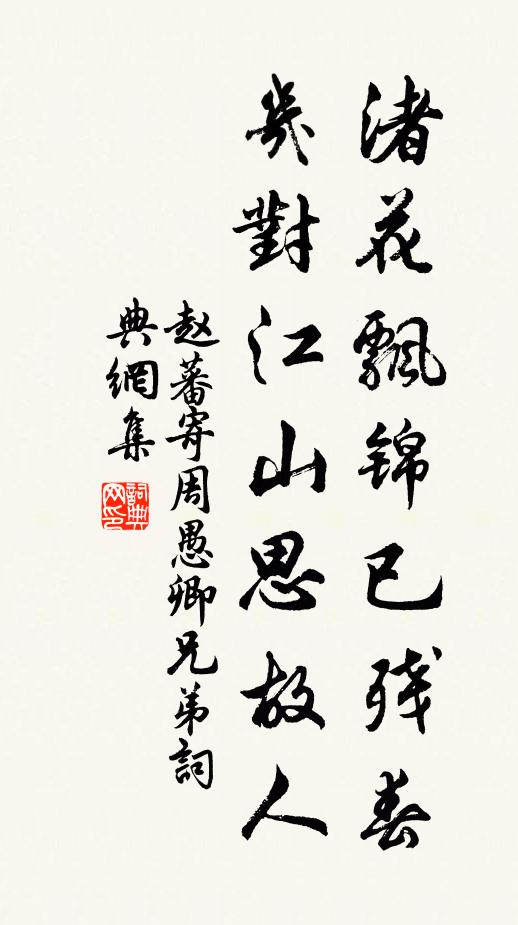 渚花飄锦已残春
幾對江山思故人
赵蕃寄周愚卿兄弟詞
典網集
詞典
网印